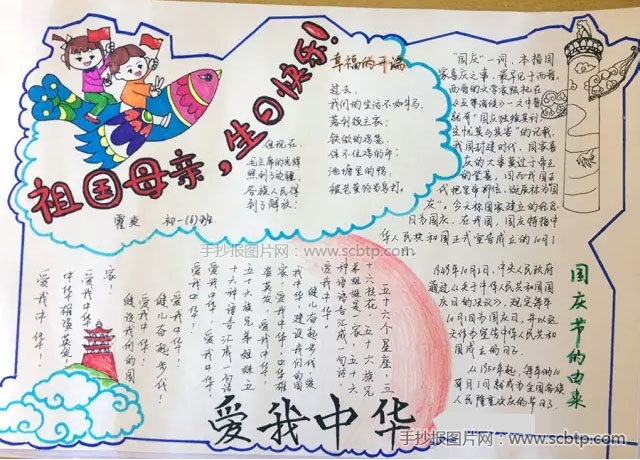 祖国母亲，生日快乐！
霍奕 初一(6)班
幸福的开端
过去，
我们的生活不如牛马，
铁做的鸡蛋，
池塘里的鸭，
但现在，
照到了边疆，
各族人民得
到了解放！
“国庆”一词，本指国
家喜庆之事，最早见于西晋。
西晋的文学家陆机在
《五等诸侯》一文中曾
就有“国庆独飨其利
主忧莫与其害”的记载，
我国封建时代，国家喜
庆的大事莫过于帝王
的登基、因而我国古
代把皇帝即位，诞辰称为“国
庆”。今天称国家建立的纪念
日为国庆。在我国，国庆特指中
华人民共和国正式宣告成立的10月1
国庆节的由来
1949年10月2日，中央人民政府
通过《关于中华人民共和国国
庆日的决议》，规定每年
10月1日为国庆日，并以这
一天作为宣告中华人民共和
国成立的日子
从1950年起，每年的10
月1日就成为全国各族
人民隆重欢庆的节日了。
五十六个星座，五
十六枝花，五十六族兄
弟姐妹是一家，五十六
种语言汇成一句话，
健儿奋起步伐，爱
我中华，建设我们的国
家，爱我中华，中华雄
姿英发，爱我中华，
五十六族兄弟姐妹
十六种语言汇成一句话
爱我中华，爱我中华
爱我中华！
健儿奋起步伐！
爱我中华！
建设我们的国
家！
爱我中华！
中华雄姿英发！
爱我中华！
爱我中华
手抄报图片网：www.scbtp.com
手抄报图片网：www.scbtp.com